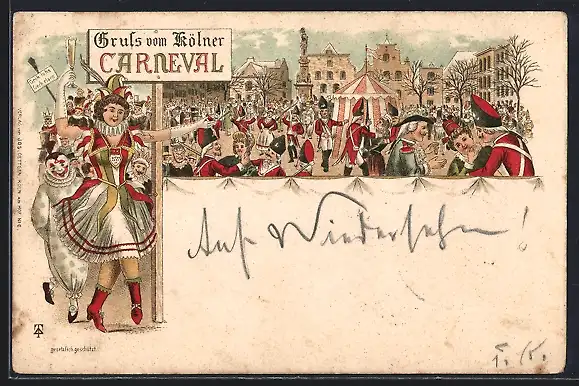 Gruss vom Kölner
CARNEVAL
Auf Wiedersehen!
gesetzlich geschützt.